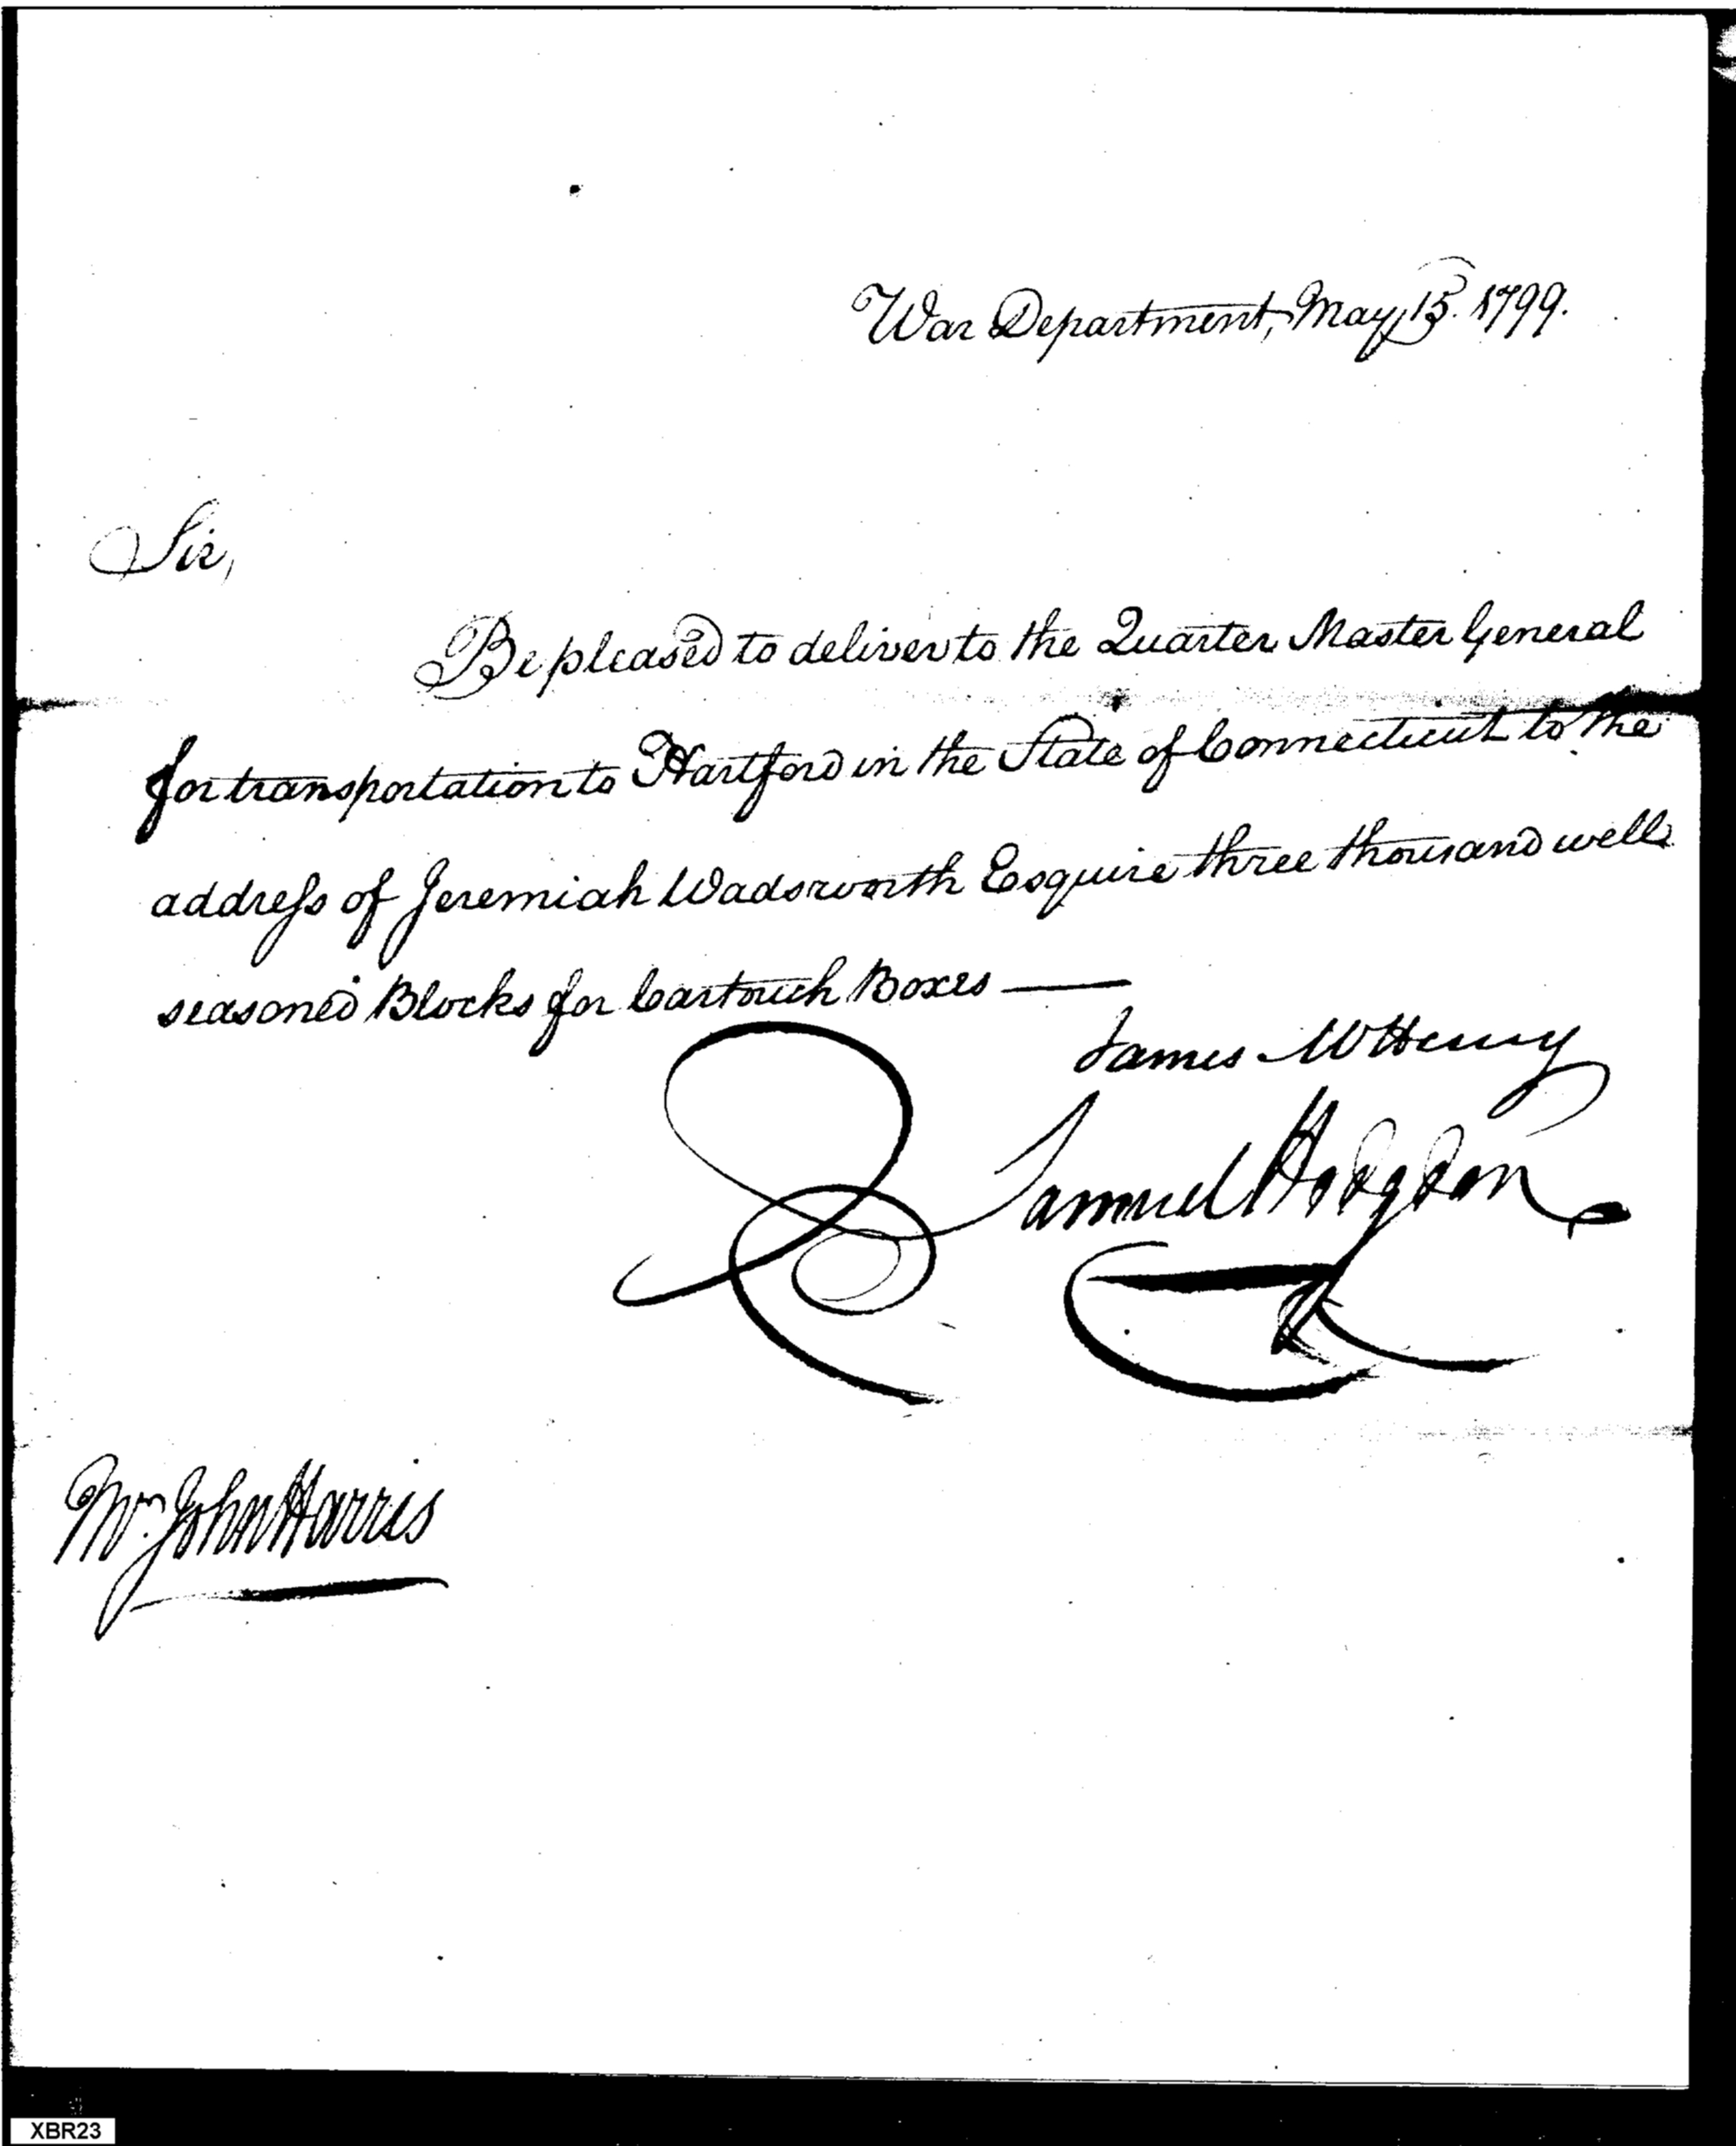 War Department, May, 15. 1799.
Sir,
Be pleased to deliver to the Quarter Master General
for transportation to Hartford in the State of Connecticut to the
address of Jeremiah Wadsworth Esquire three thousand well
seasoned Blocks for Cartouch Boxes —
James McHenry
Samuel Hodgdon
Mr. John Harris
XBR23